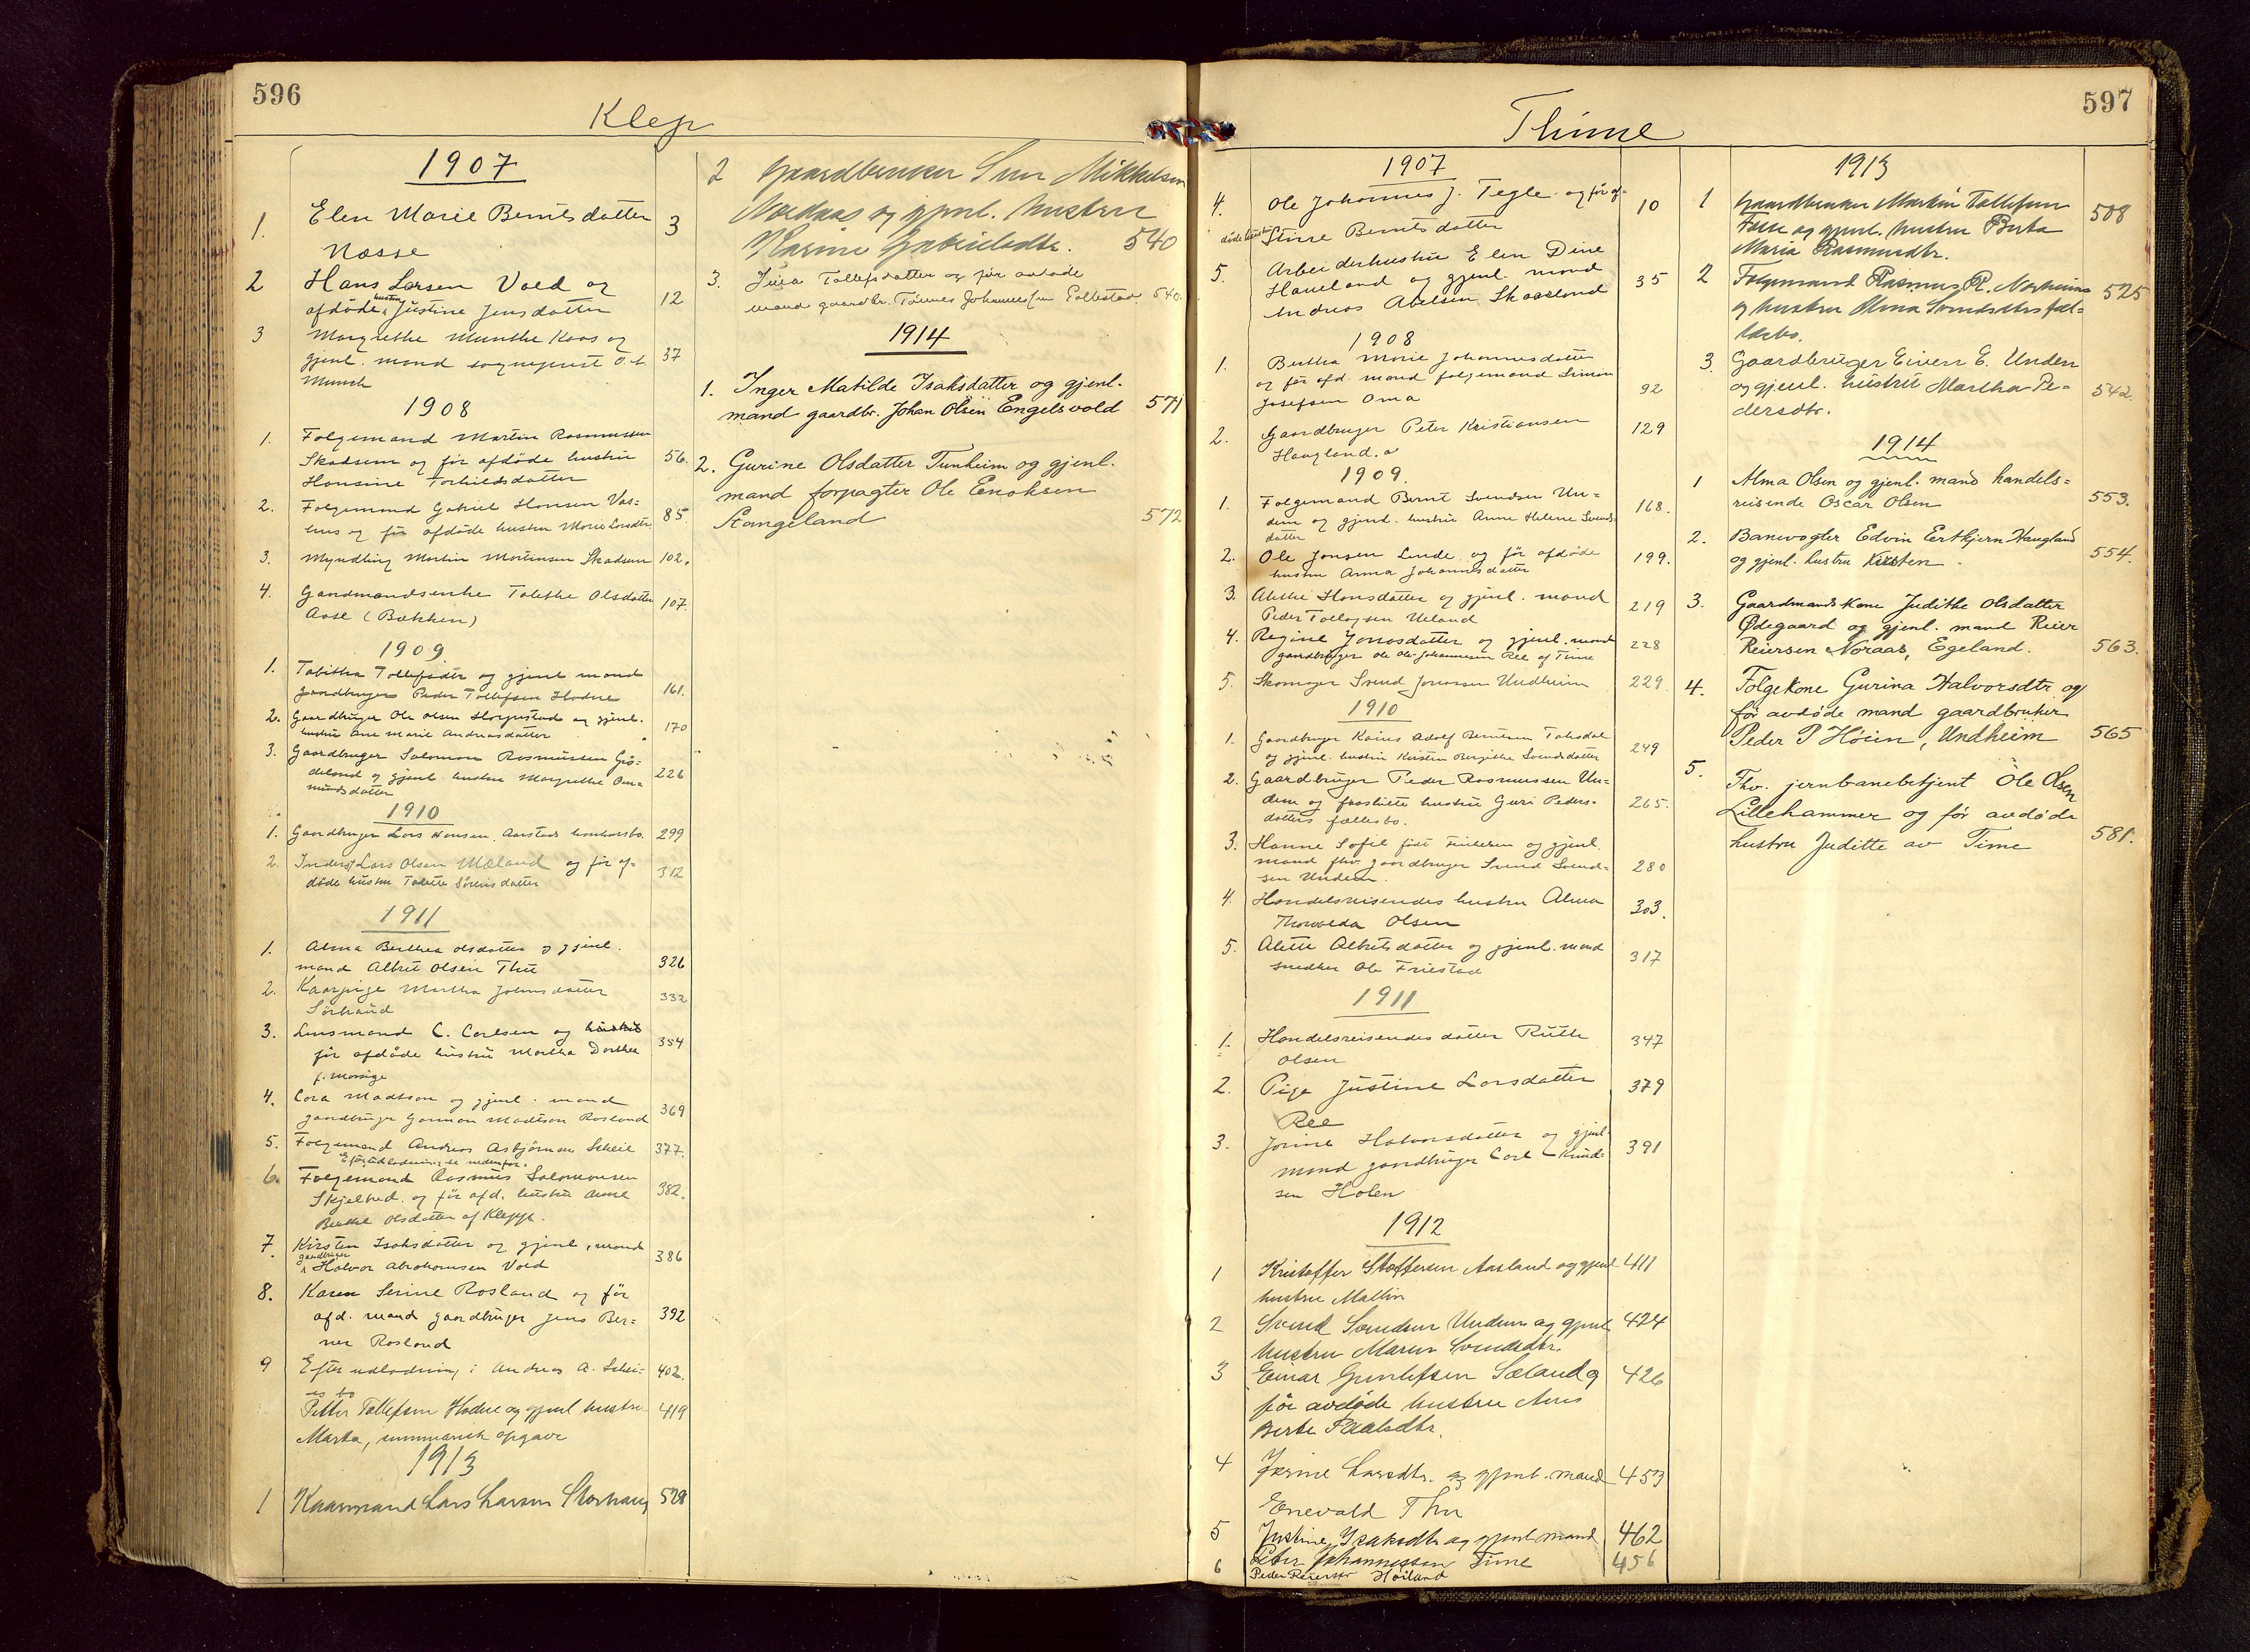 596
Klep
1907
1. Elen Marie Berntsdatter 3
Næsse
2 Hans Larsen Vold og
afdøde hustru Justine Jensdatter 12
3 Margrethe Munthe Kaas og
gjenl. mand sogneprest O. A. 37
Munch
1908
1. Følgemand Martin Rasmussen
Skadsem og før afdøde hustru 56.
Hansine Torkildsdatter
2. Følgemand Gabriel Hansen Vas=
hus og før afdøde hustru Marie Larsdtr. 85.
3. Myndling Martin Mortensen Skadsem 102.
4. Gaardmandsenke Tabithe Olsdatter 107.
Aase (Bækken)
1909
1. Tabitha Tollefsdtr og gjenl mand
gaardbruger Peder Tollefsen Hodne 161.
2. Gaardbruger Ole Olsen Horpestad og gjenl.
hustru Ane Marie Andreasdatter 170
3. Gaardbruger Salomon Rasmussen Grø=
deland og gjenl hustru Margrethe Om= 226
mundsdatter
1910
1. Gaardbruger Lars Hansen Aarstads konkursbo. 299
2. Inderst Lars Olsen Mæland og før af=
døde hustru Tabitte Sørensdatter 312
1911
1. Alma Berthea Olsdatter og gjenl.
mand Albret Olsen Thu 326
2. Kaarpige Martha Johnsdatter 332
Sørbraud
3. Lensmand C. Carlsen og hustru
før afdøde hustru Martha Dorthea 354
f. Massige
4. Cora Madtson og gjenl. mand
gaardbruger Garman Madtson Rosland 369
5. Følgemand Andreas Asbjørnsen Scheie 377.
Efterudlodning se nedenfor.
6. Følgemand Rasmus Salomonsen
Skjelbred. og før afd. hustru Anne 382.
Berthe Olsdatter af Kleppe.
7. Kirsten Isaksdatter og gjenl. mand
gaardbruger Halvor Abrahamsen Vold 386
8. Karen Serine Rosland og før
afd. mand gaardbruger Jens Ber= 392
ner Rosland
9 Efterudlodning i Andreas A. Schei= 402.
es bo
Petter Tollefsen Hodne og gjenl hustru 419
Marta, summarisk opgave
1913
1 Kaarmand Lars Larsen Storhaug 528
2 Gaardbruker Mikkelsen
Nordaas og gjenl. hustru
Karine Gabrielsdtr. 540
3. Tollefsdatter og før avdøde
mand gaardbr. Tønnes Johannessen 540.
1914
1. Inger Matilde Isaksdatter og gjenl.
mand gaardbr. Johan Olsen Engelsvold 571
2. Gurine Olsdatter Tunheim og gjenl.
mand forpagter Ole Enoksen
Stangeland 572
597
Thime
1907
4. Ole Johannes J. Tegle og før af=
døde hustru Stine Berntsdatter 10
5. Arbeiderhustru Elen Dine
Haueland og gjenl. mand 35
Andreas Abelsen Skaarland
1908
1. Bertha Marie Johannesdatter
og før afd. mand følgemand Simon 92
Josefsen Oma
2. Gaardbruger Peter Kristiansen 129
Haugland.
1909.
1. Følgemand Bernt Svendsen Un=
dem og gjenl. hustru Anne Helene Svends 168.
datter
2. Ole Jonsen Lende og før afdøde 199.
hustru Anna Johannesdatter
3. Alethe Hansdatter og gjenl. mand 219
Peder Tollagsen Ueland
4. Regine Jonasdatter og gjenl. mand 228
gaardbruger Ole Johannessen Ree af Time
5. Skomager Svend Jonassen Undheim 229.
1910
1. Gaardbruger Kaius Adolf Berntsen Taksdal
og gjenl. hustru Kirsten Bergithe Svendsdatter 249
2. Gaardbruger Peder Rasmussen Un=
dem og fraskilte hustru Guri Peders= 265.
datters fællesbo.
3. Hanne Sofie født og gjenl.
mand fhv. gaardbruger Svend Svend= 280
sen Undem.
4. Handelsreisendes hustru Alma 303.
Thorvalda Olsen
5. Alette Albretsdatter og gjenl. mand 317
snedker Ole Friestad
1911
1. Handelsreisendes datter Ruth 347
Olsen
2. Pige Justine Larsdatter 379
Ree
3. Jorine Halvorsdatter og gjenl. 391
mand gaardbruger Carl Knud=
sen Holen
1912
1 Kristoffer Stoffersen Aasland og gjenl 411
hustru Mallin
2 Svend Svendsen Undem og gjenl. 424
hustru Maren Svendsdtr.
3 Einar Gunlefsen Sæland og 426
før avdøde hustru Ane
Berte Paalsdtr.
4 Jorine Larsdtr. og gjenl. mand 453
Enevald Thu
5 Justine Isaksdtr og gjenl. mand 462
Peter Johannessen Time
6 Peder Reiersen Høiland 456
1913
1 Gaardbruker Martin Tollefsen 508
Fosse og gjenl. hustru Berta
Maria Rasmusdtr.
2 Følgemand Rasmus R. Norheim 525
og hustru Olena Svendsdtrs fæl-
lesbo.
3. Gaardbruger Eiven E. Undem
og gjenl. hustru Martha Pe= 542.
dersdtr.
1914
1 Alma Olsen og gjenl. mand handels=
reisende Oscar Olsen 553.
2. Banevogter Edvin Eertkjern Haugland
og gjenl. hustru Kirsten 554.
3. Gaardmandskone Judithe Olsdatter
Ødegaard og gjenl. mand Reier
Reiersen Noraas, Egeland. 563.
4. Følgekone Gurina Halvorsdtr. og
før avdøde mand gaardbruker
Peder P Høien, Undheim 565
5. Fhv. jernbanebetjent Ole Olsen
Lillehammer og før avdøde
hustru Juditte av Time 581.